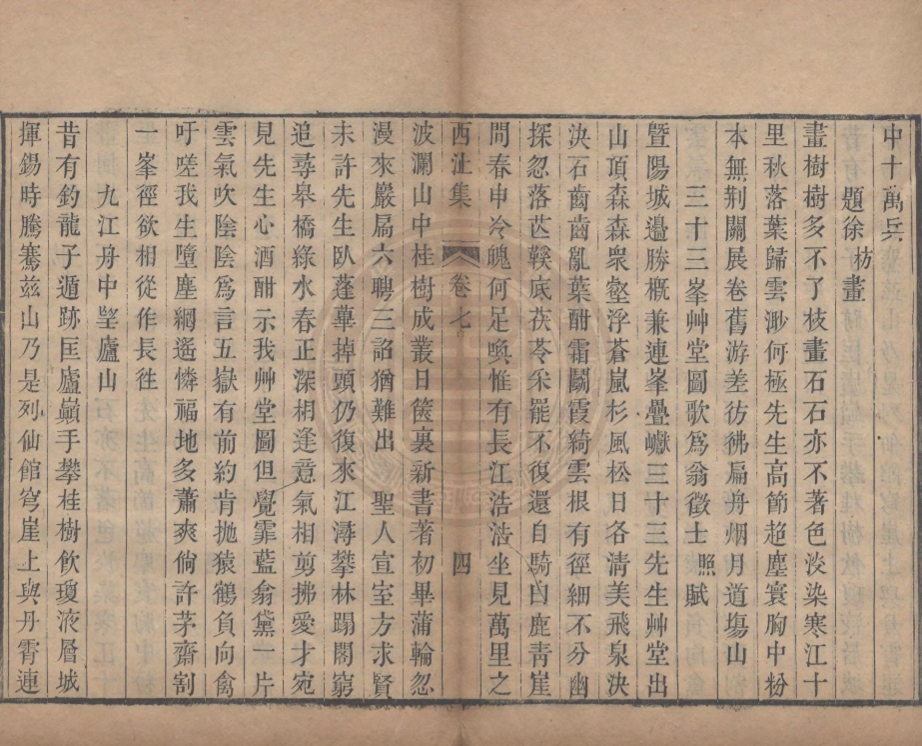 中十萬兵
題徐枋畫
畫樹樹多不了枝畫石石亦不著色淡染寒江十
里秋落葉歸雲渺何極先生高節超塵寰胸中粉
本無荆關展卷舊游差彷彿扁舟烟月道場山
三十三峯艸堂圖歌爲翁徵士照賦
暨陽城邉勝概兼連峯疊巘三十三先生艸堂出
山頂森森衆壑浮蒼嵐杉風松日各清美飛泉決
決石齒齒亂葉酣霜鬭霞綺雲根有徑細不分幽
探忽落芒鞵底茯苓采罷不復還自騎白鹿靑崖
間春申冷魄何足喚惟有長江浩浩坐見萬里之
西沚集
卷七
四
波瀾山中桂樹成叢日篋裏新書著初畢蒲輪忽
漫來嚴扃六聘三詔猶難出 聖人宣室方求賢
未許先生臥蓬蓽掉頭仍復來江潯攀林蹋閣窮
追尋皋橋綠水春正深相逢意氣相剪拂愛才宛
見先生心酒酣示我艸堂圖但覺霏藍翕黛一片
雲氣吹陰陰爲言五嶽有前約肯拋猿鶴負向禽
吁嗟我生墮塵網遙憐福地多蕭爽倘許茅齋割
一峯徑欲相從作長徃
九江舟中望廬山
昔有釣龍子遁跡匡廬巔手攀桂樹飲瓊液層城
揮錫時騰騫兹山乃是列仙館穹崖上與丹霄連